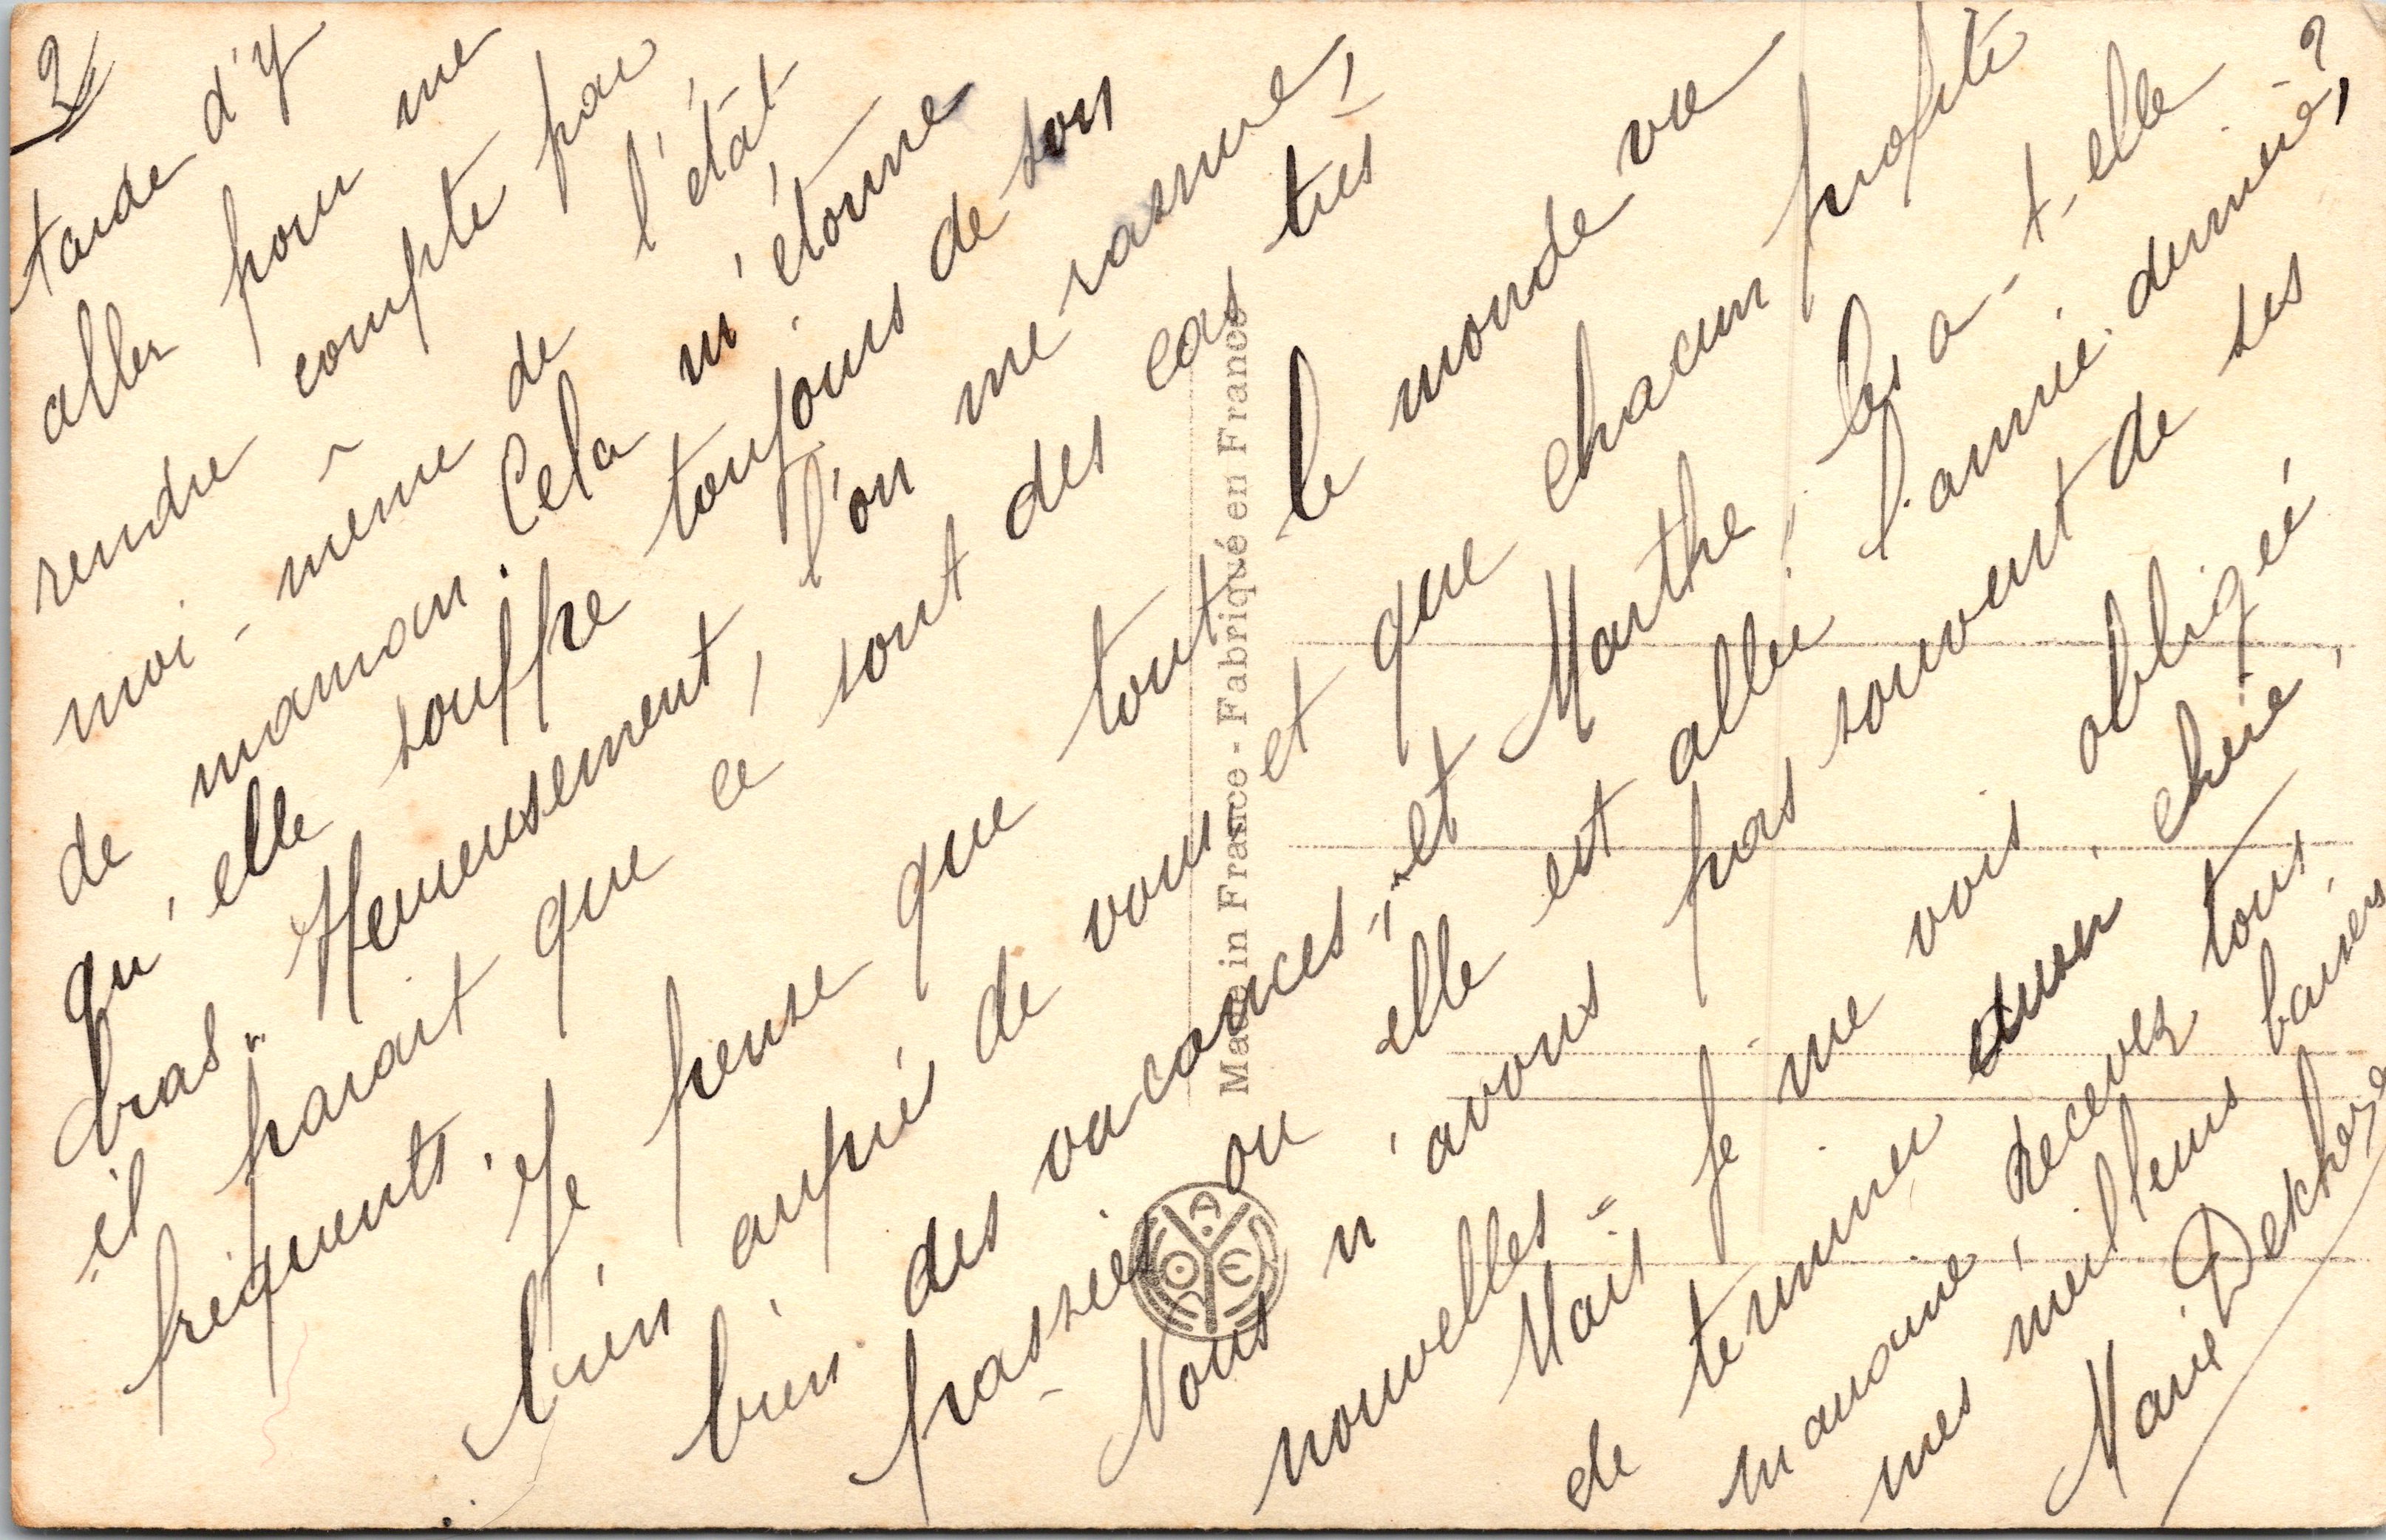 2
tarde d'y
aller pour me
rendre compte par
moi-même de l'état
de maman. Cela m'étonne
qu'elle souffre toujours de son
bras. Heureusement, l'on me rassure,
il parait que ce sont des cas très
fréquents. Je pense que tout le monde va
bien auprès de vous et que chacun profite
bien des vacances; et Marthe, les a-t-elle
passées ou elle est allée l'année dernière?
Nous n'avons pas souvent de ses
nouvelles. Mais je me vois obligée
de terminer chère
maraine, recevez tous
mes meilleurs baisers
Marie
Made in France - Fabriqué en France